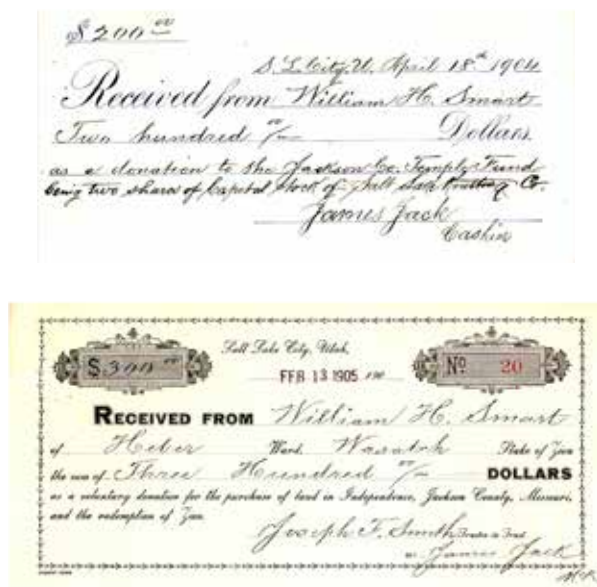 $200 00
S. L. City, U. April 18th 1904
Received from William H. Smart
Two hundred 00/— Dollars
as a donation to the Jackson Co. Temple Fund
being two shares of Capital Stock of Salt Lake Knitting Co.
James Jack
Cashier
$300 00
Salt Lake City, Utah,
FEB 13 1905 190
No 20
RECEIVED FROM William H. Smart
of Heber Ward, Wasatch Stake of Zion
the sum of Three Hundred 00/— DOLLARS
as a voluntary donation for the purchase of land in Independence, Jackson County, Missouri,
and the redemption of Zion.
Joseph F. Smith Trustee in Trust
James Jack